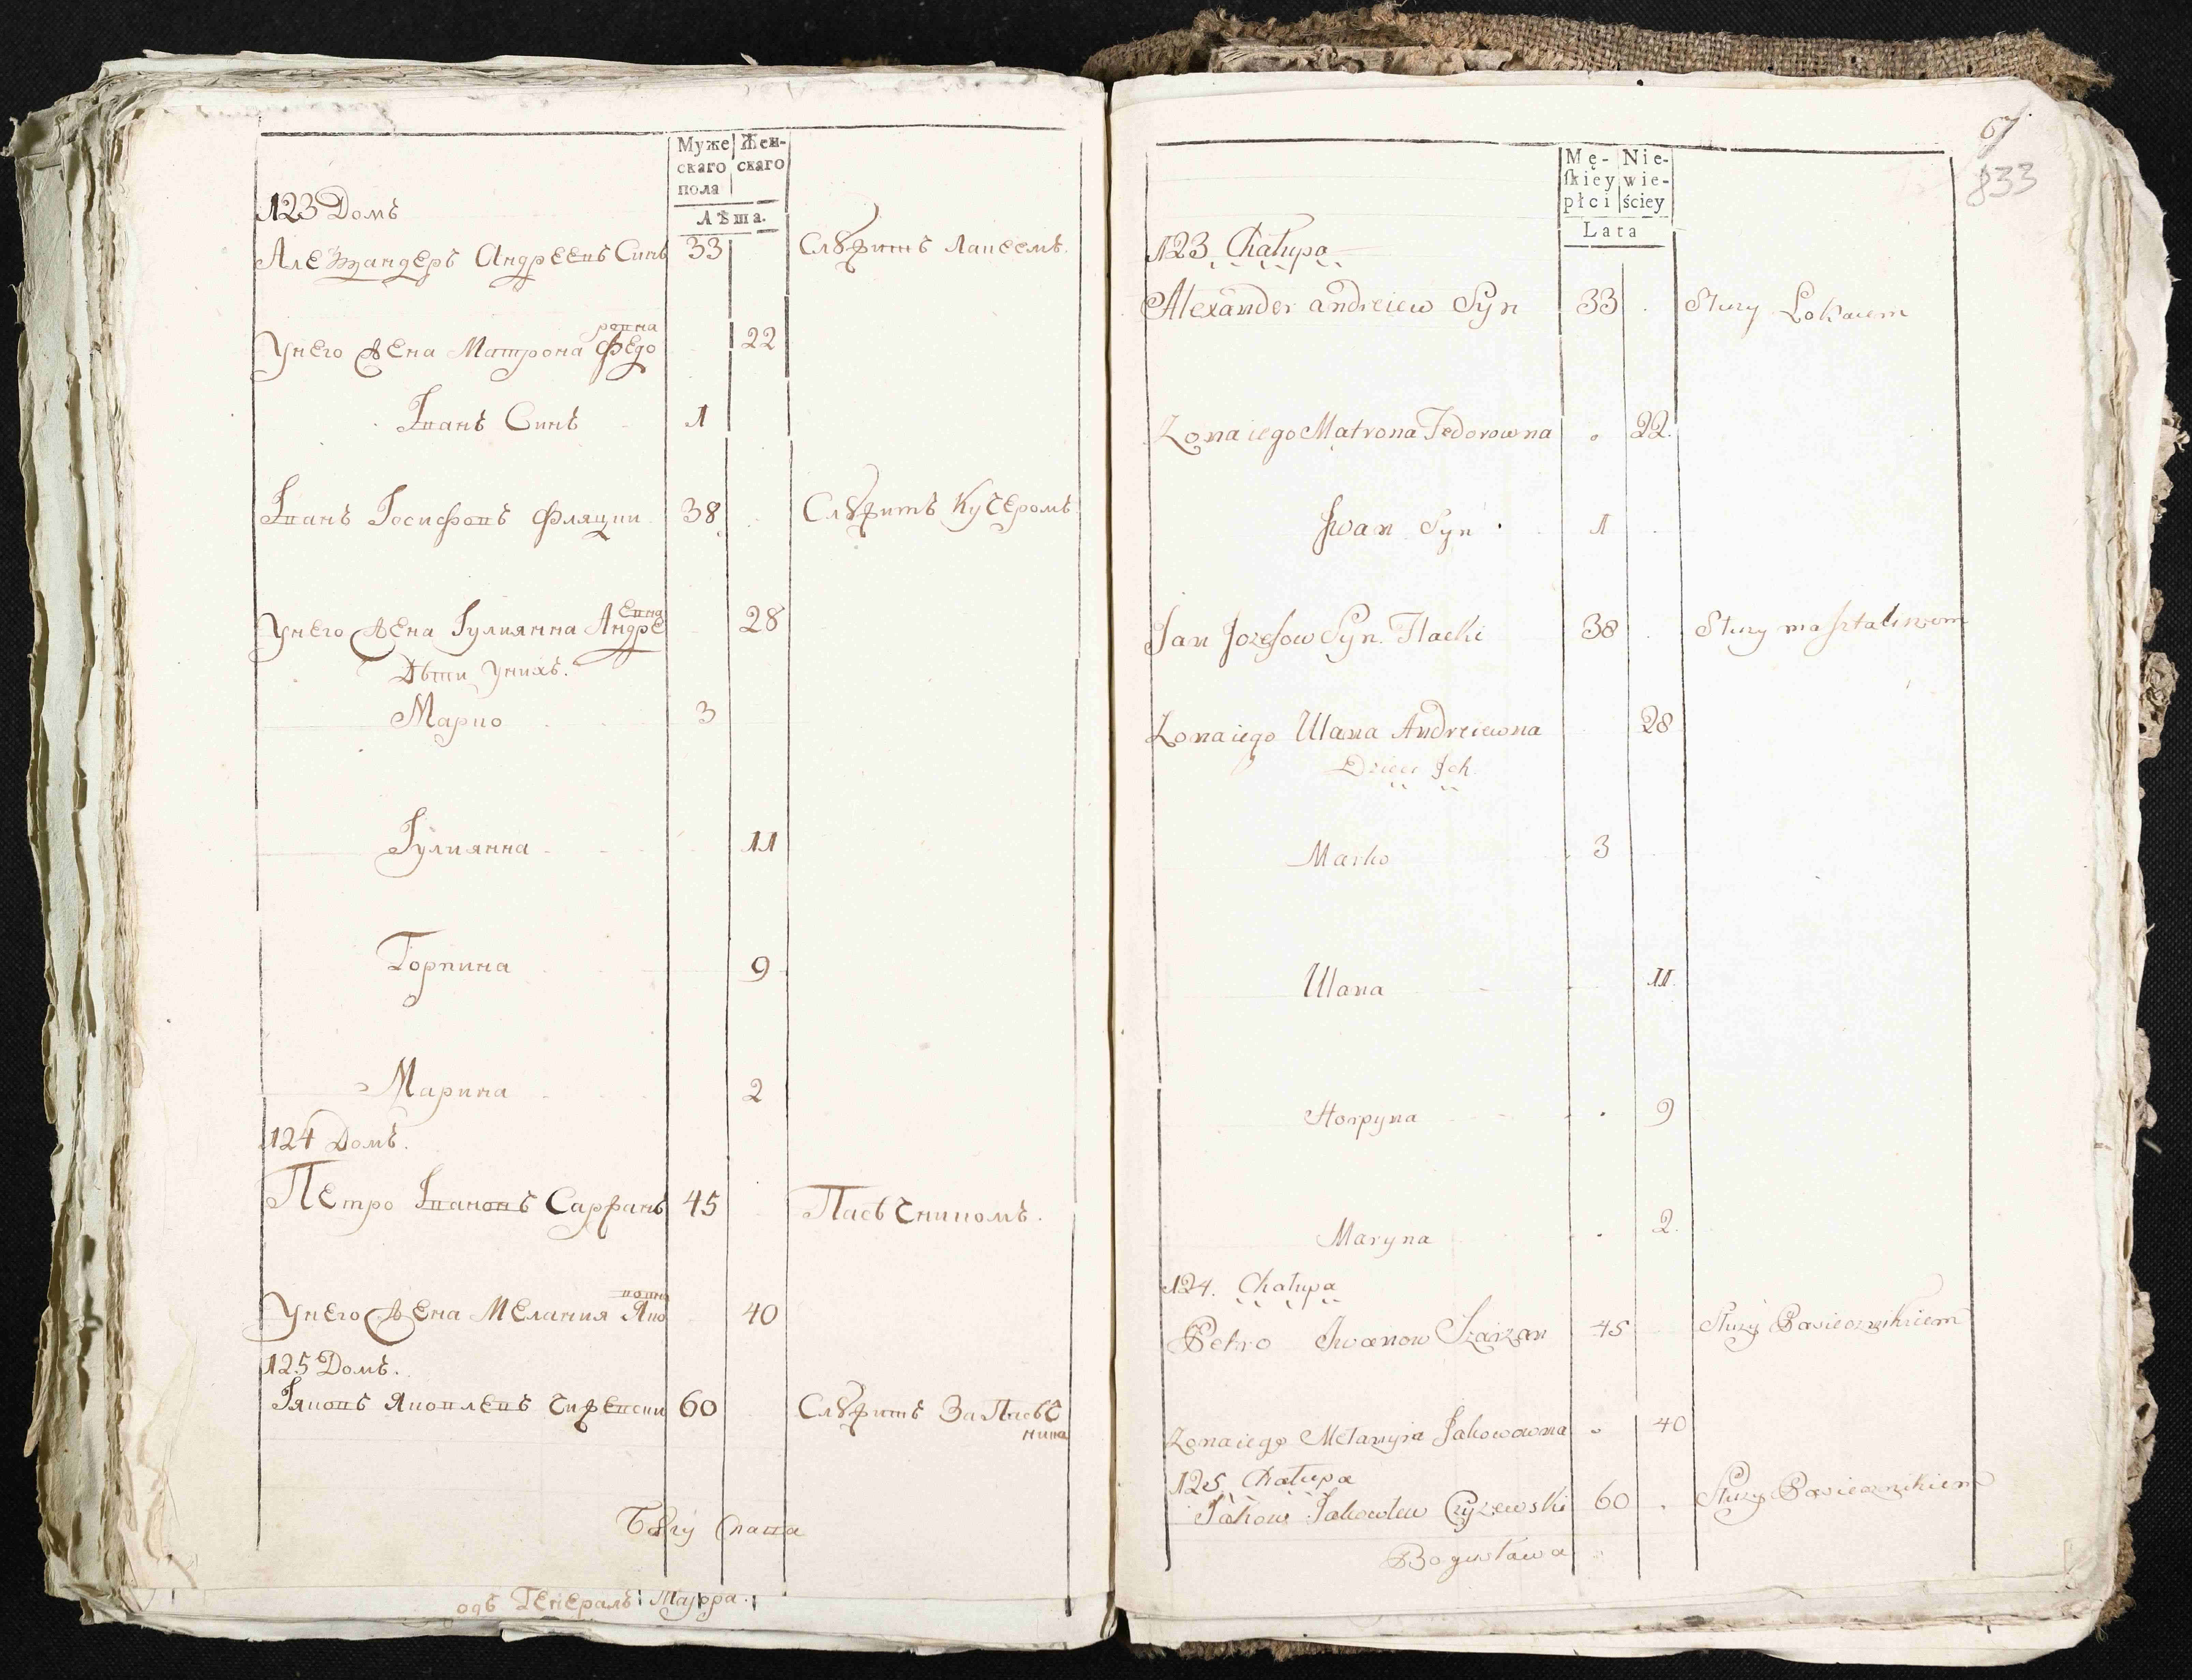 Муже Жен-
скаго скаго
пола
Лѣта.
123 Домъ
Алеѯандеръ Андреевъ Синъ 33 Служитъ Лакеемъ.
ровна
Унего Жена Матрона Федо 22
Іванъ Синъ 1
Іванъ Іосифовъ Фляцки 38 Служитъ Кучеромъ
евна
Унего Жена Іулиянна Андре 28
Дѣти Унихъ.
Марко 3
Іулиянна 11
Горпина 9
Марина 2
124 Домъ.
Петро Івановъ Саржанъ 45 Пасѣчникомъ.
вовна
Унего Жена Мелания Яко 40
125 Домъ.
Іяковъ Яковлевъ Чижевски 60 Служитъ За Пасѣч
ника
Богуслава
одъ Генералъ Маjора.
67
833
Mę- Nie-
ſkiey wie-
płci ściey
Lata
123 Chałupa
Alexander andreiew Syn 33 Słuzy Lokaiem
Zona iego Matrona Fedorowna 22.
Iwan Syn 1
Jan Jozefow Syn. Flacki 38 Słuzy masztalirzem
Zona iego Ulana Andreiewna 28
Dzieci Ich.
Marko 3
Ulana 11.
Horpyna 9
Maryna 2.
124. Chałupa
Petro Iwanow Szarzan 45 Słuzy Pasiecznikiem
Zona iego Melanyia Jakowowna 40
125 Chałupa
Jakow Jakowlew Czyzewski 60 Słuzy Pasiecznikiem
Bogusława